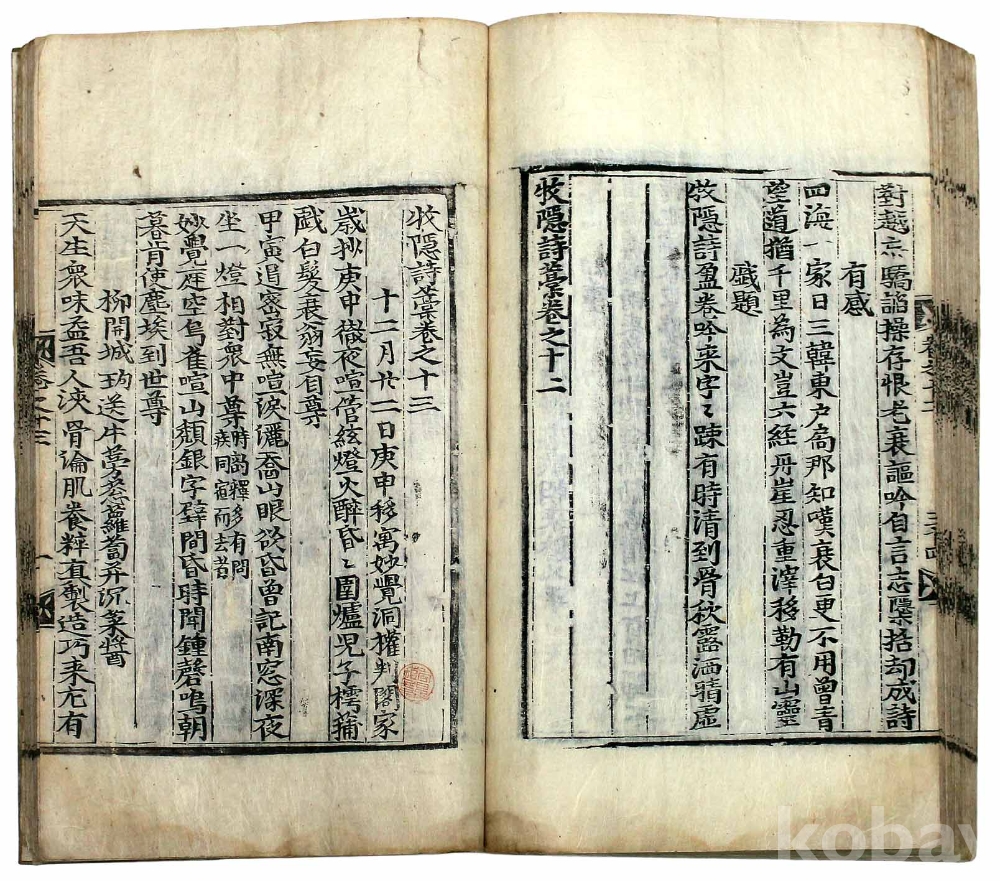 對越亦驕謟操存恨老衰謳吟自言志檃括却成詩
有感
四海一家日三韓東戶高那知嘆衰白更不用曾青
望道猶千里為文豈六経丹崖忍重滓移勒有山靈
戱題
牧隱詩盈卷吟来字〻踈有時清到骨秋露洒晴虛
牧隱詩藁卷之十二
牧隱詩藁卷之十三
十二月廿二日庚申移寓妙覺洞權判閣家
歲抄庚申徹夜喧管絃燈火醉昏〻圍爐兒子樗蒲
戱白髮衰翁妄自尊
甲寅遏密寂無喧淚灑喬山眼欲昏曾記南窓深夜
坐一燈相對衆中尊時爲釋多有問疾同宿而去者
妙覺庭空鳥雀喧山頹銀字壁間昏時聞鍾磬鳴朝
暮肯使塵埃到世尊
柳開城珣送牛蒡葱蘿蔔并沉菜醬
天生衆味益吾人浹骨淪肌養粹眞製造巧来尤有
kobay